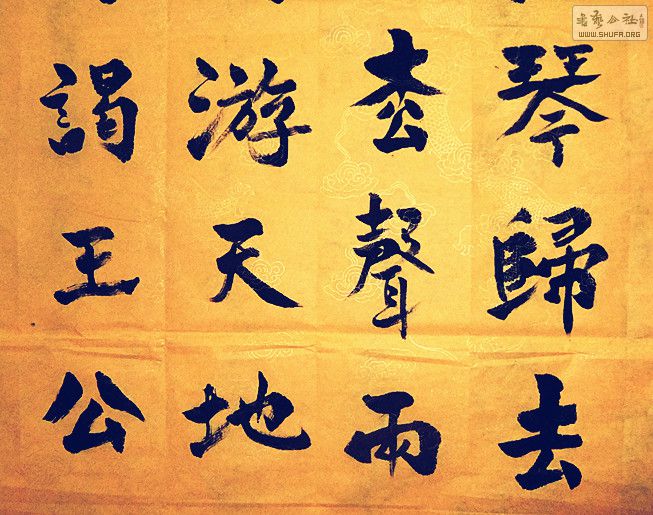 琴歸去
枩聲雨
游天地
謁王公
書藝公社
WWW.SHUFA.ORG